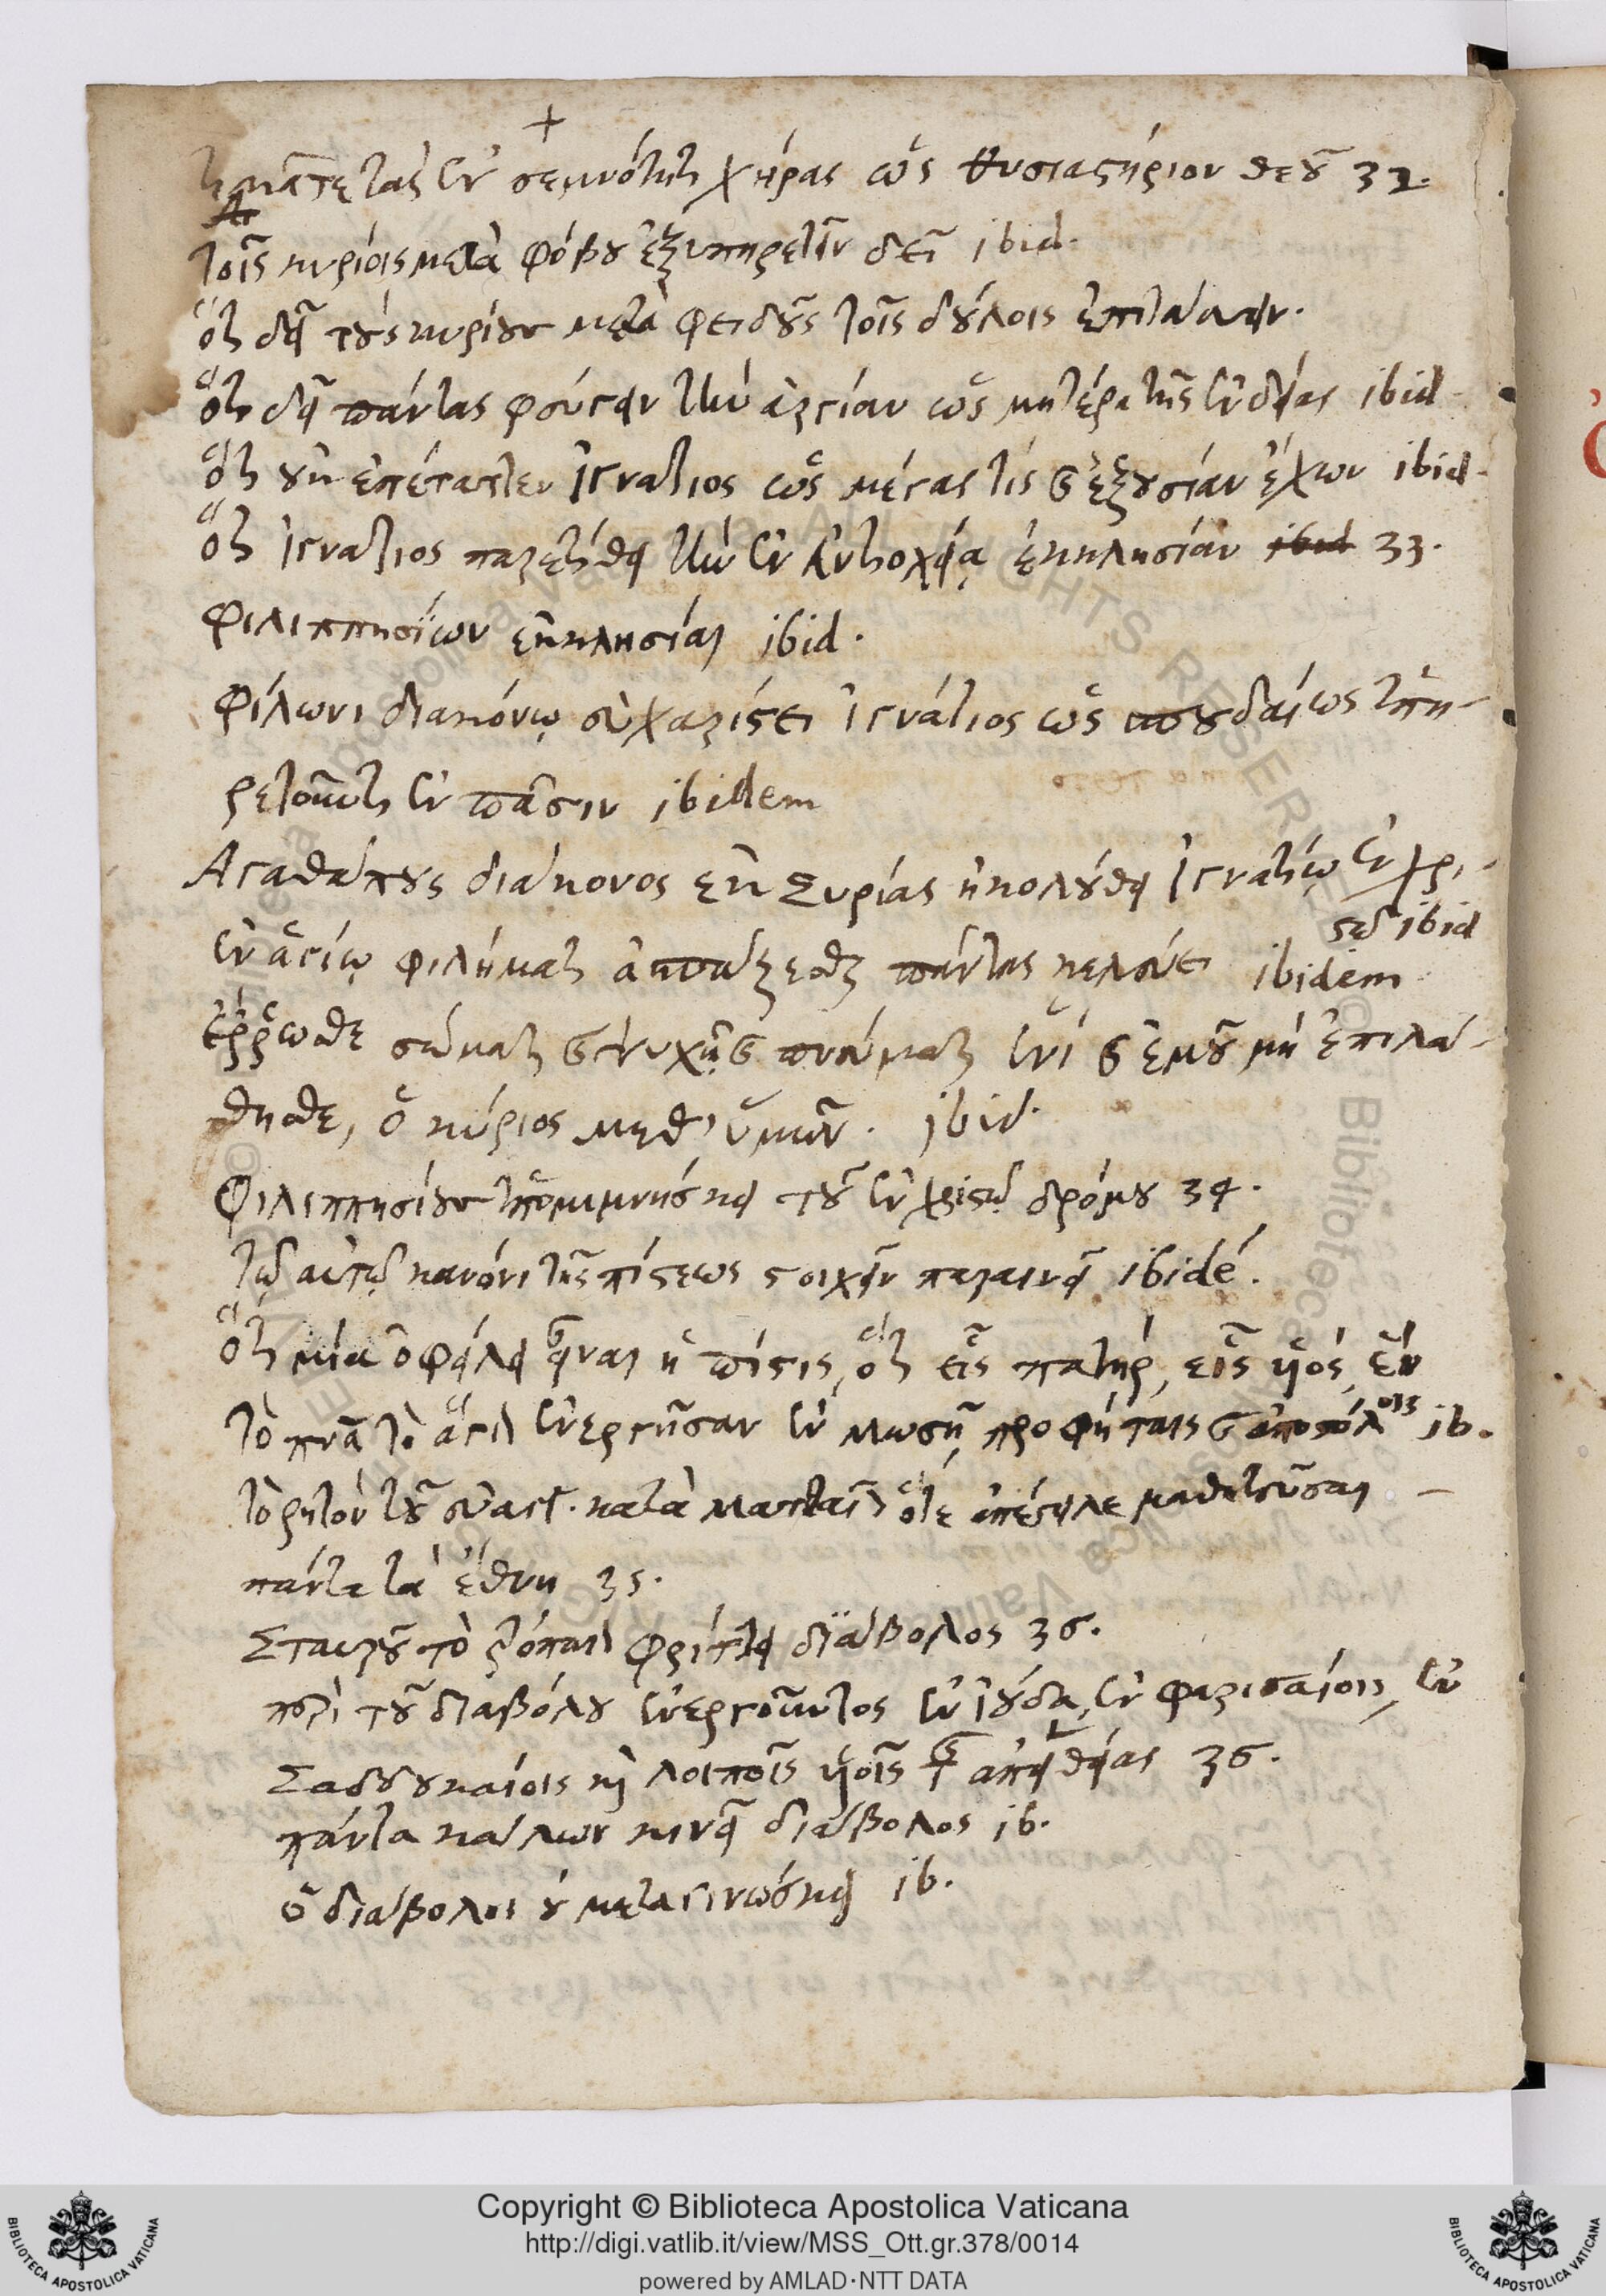 +
τιμᾶτε τὰς ἐν σεμνότητι χήρας ὡς θυσιαστήριον θεοῦ 32.
τοῖς κυρίοις μετὰ φόβου ἐξυπηρετεῖν δεῖ ibid.
ὅτι δεῖ τοὺς κυρίους μετὰ φειδοῦς τοῖς δούλοις ἐπιτάσσειν.
ὅτι δεῖ πάντας φεύγειν τὴν ἀργίαν ὡς μητέρα τῆς ἐνδείας ibid
ὅτι οὐκ ἐπέταττεν Ἰγνάτιος ὡς μέγας τὶς καὶ ἐξουσίαν ἔχων ibid.
ὅτι Ἰγνάτιος παρετέθη τὴν ἐν Ἀντιοχείᾳ ἐκκλησίαν ibid 33.
Φιλιππησίων ἐκκλησίαι ibid.
Φίλωνι διακόνῳ εὐχαρίστει Ἰγνάτιος ὡς σπουδαίως ὑπη-
ρετοῦντι ἐν πᾶσιν ibidem
Ἀγαθόπους διάκονος ἐκ Συρίας ἠκολούθει Ἰγνατίῳ ἐν χρι-
στῷ ibid
ἐν ἁγίῳ φιλήματι ἀσπάζεσθαι πάντας κελεύει ibidem
ἔρρωσθε σώματι καὶ ψυχῇ καὶ πνεύματι ἐνὶ καὶ ἐμοῦ μὴ ἐπιλά-
θησθε, ὁ κύριος μεθ' ὑμῶν. ibid.
Φιλιππησίους ὑπομιμνήσκει τοῦ ἐν χριστῷ δρόμου 34.
τῷ αὐτῷ κανόνι τῆς πίστεως στοιχεῖν παραινεῖ ibidē.
ὅτι μία ὀφείλει εἶναι ἡ πίστις, ὅτι εἷς πατὴρ, εἷς υἱός, ἓν
τὸ πνᾶ τὸ ἅγιον ἐνεργῆσαν ἐν Μωσῇ, προφήταις καὶ ἀποστόλοις ib.
τὸ ῥητὸν τοῦ εὐαγγ. κατὰ Ματθαῖον ὅτε ἀπέστειλε μαθητεῦσαι
πάντα τὰ ἔθνη 35.
Σταυροῦ τὸ τρόπαιον φρίττει διάβολος 36.
περὶ τοῦ διαβόλου ἐνεργοῦντος ἐν Ἰούδᾳ, ἐν φαρισαίοις, ἐν
Σαδδουκαίοις καὶ λοιποῖς υἱοῖς τῆς ἀπειθείας 36.
πάντα κάλων κινεῖ διάβολος ib.
ὁ διάβολος οὐ μεταγινώσκει ib.
Copyright © Biblioteca Apostolica Vaticana
http://digi.vatlib.it/view/MSS_Ott.gr.378/0014
powered by AMLAD·NTT DATA
BIBLIOTECA APOSTOLICA VATICANA
BIBLIOTECA APOSTOLICA VATICANA